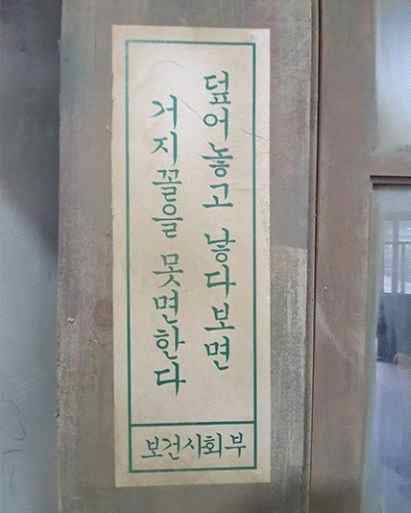 덮어놓고 낳다보면
거지꼴을 못면한다
보건사회부